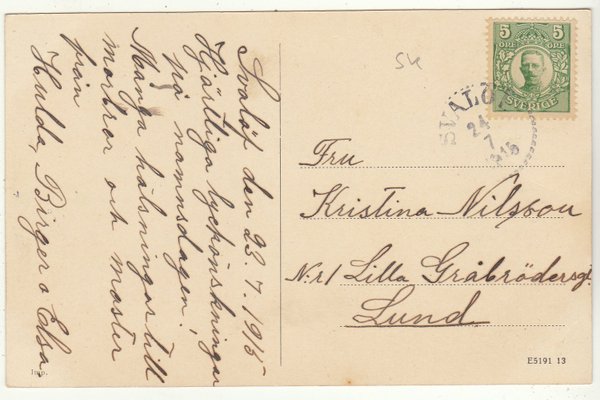 Svalöf den 23.7.1915
Hjärtliga lyckönskningar
på namnsdagen!
Många hälsningar till
morbror och moster
från
Hulda, Birger o Elsa.
Imp.
SK
5 5
ÖRE ÖRE
SVERIGE
SVALÖF
24
7
1915
Fru
Kristina Nilsson
N:r 1 Lilla Gråbrödersg.
Lund
E5191 13